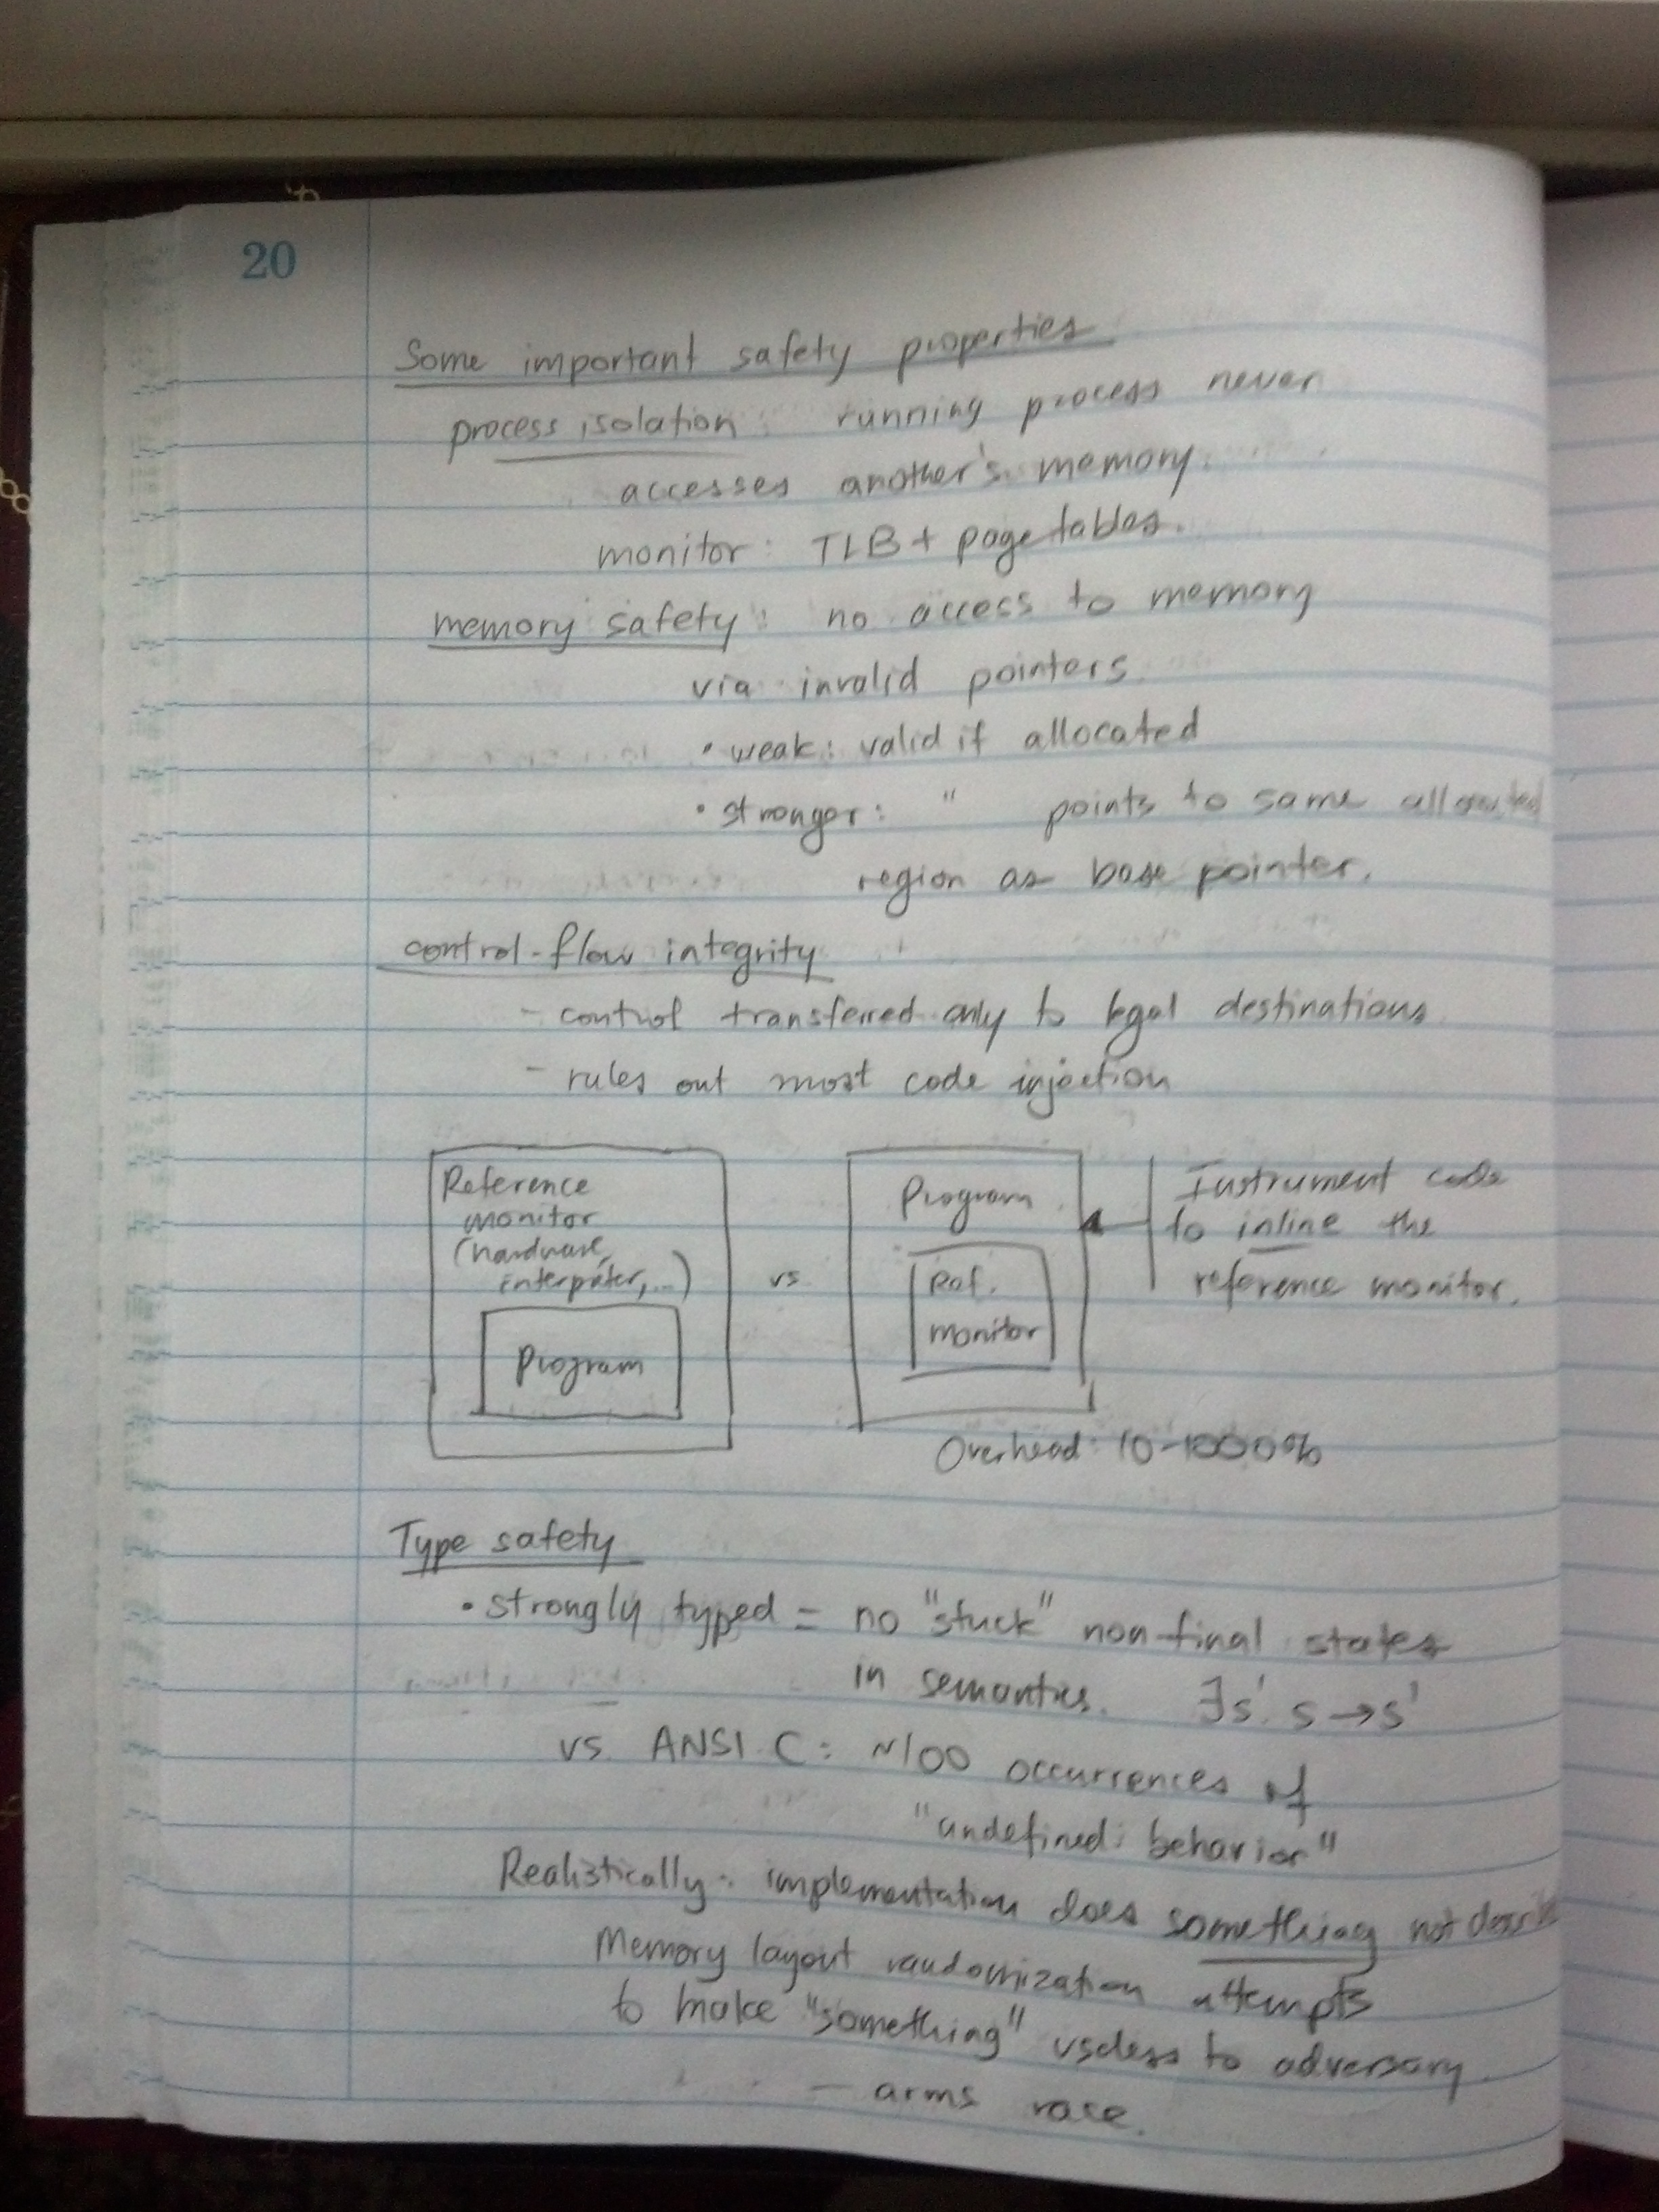 20
Some important safety properties
process isolation: running process never
accesses another's memory.
monitor: TLB + page tables.
memory safety: no access to memory
via invalid pointers.
• weak: valid if allocated
• stronger: " points to same allocated
region as base pointer.
control-flow integrity
- control transferred only to legal destinations
- rules out most code injection
Reference
monitor
(hardware,
interpreter,...)
Program
vs
Program
Ref.
monitor
Instrument code
to inline the
reference monitor.
Overhead: 10-1000%
Type safety
• strongly typed = no "stuck" non-final states
in semantics. ∃s'. s→s'
vs. ANSI C: ~100 occurrences of
"undefined behavior"
Realistically: implementation does something not
Memory layout randomization attempts
to make "something" useless to adversary.
- arms race.